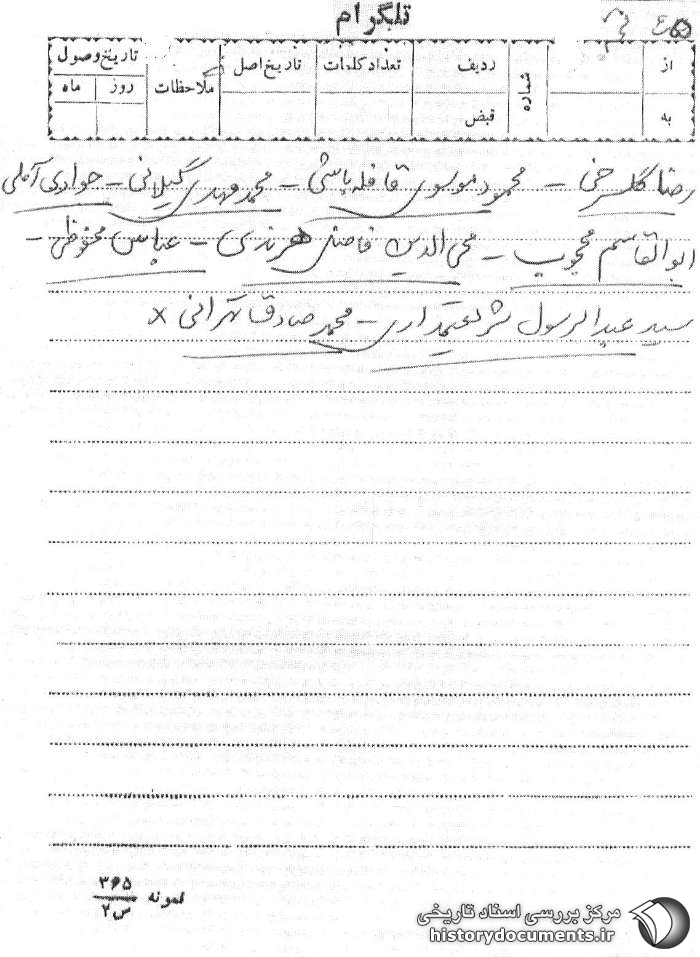 تلگرام
از
به
شماره
ردیف
قبض
تعداد کلمات
تاریخ اصل
ملاحظات
تاریخ وصول
روز
ماه
رضا گلسرخی - محمود موسوی قافله‌باشی - محمد مهدی گیلانی - جوادی آملی
ابوالقاسم محجوب - محی الدین فاضل هرندی - عباس محفوظی -
سید عبدالرسول شریعتمداری - محمد صادق تهرانی ×
نمونه ۳۶۵ / س ۲
مرکز بررسی اسناد تاریخی
historydocuments.ir